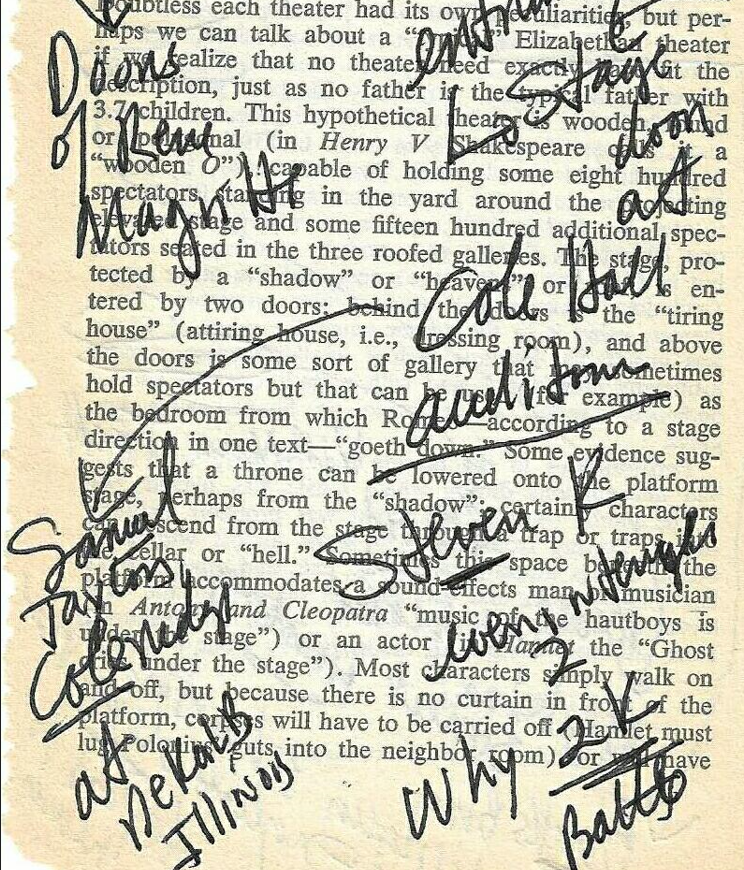 Doubtless each theater had its own peculiarities, but per-
haps we can talk about a Elizabethan theater
if we realize that no theater need exactly have fit the
description, just as no father is the typical father with
3.7 children. This hypothetical theater is wooden, round
or polygonal (in Henry V Shakespeare calls it a
“wooden O”), capable of holding some eight hundred
spectators standing in the yard around the projecting
elevated stage and some fifteen hundred additional spec-
tators seated in the three roofed galleries. The stage, pro-
tected by a “shadow” or “heavens” or is en-
tered by two doors; behind the doors is the “tiring
house” (attiring house, i.e., dressing room), and above
the doors is some sort of gallery that may sometimes
hold spectators but that can be used (for example) as
the bedroom from which Romeo—according to a stage
direction in one text—“goeth down.” Some evidence sug-
gests that a throne can be lowered onto the platform
stage, perhaps from the “shadow”; certain characters
can descend from the stage through a trap or traps into
the cellar or “hell.” Sometimes this space beneath the
platform accommodates a sound-effects man or musician
(in Antony and Cleopatra “music of the hautboys is
under the stage”) or an actor (in Hamlet the “Ghost
cries under the stage”). Most characters simply walk on
and off, but because there is no curtain in front of the
platform, corpses will have to be carried off (Hamlet must
lug Polonius' guts into the neighbor room), or will have
Doors
of Rene
Magritte
Samuel
Taylor
Coleridge
at
DeKalb
Illinois
to Stage
door
at
Cole Hall
auditorium
Steven K
every
Why 2K
Battle